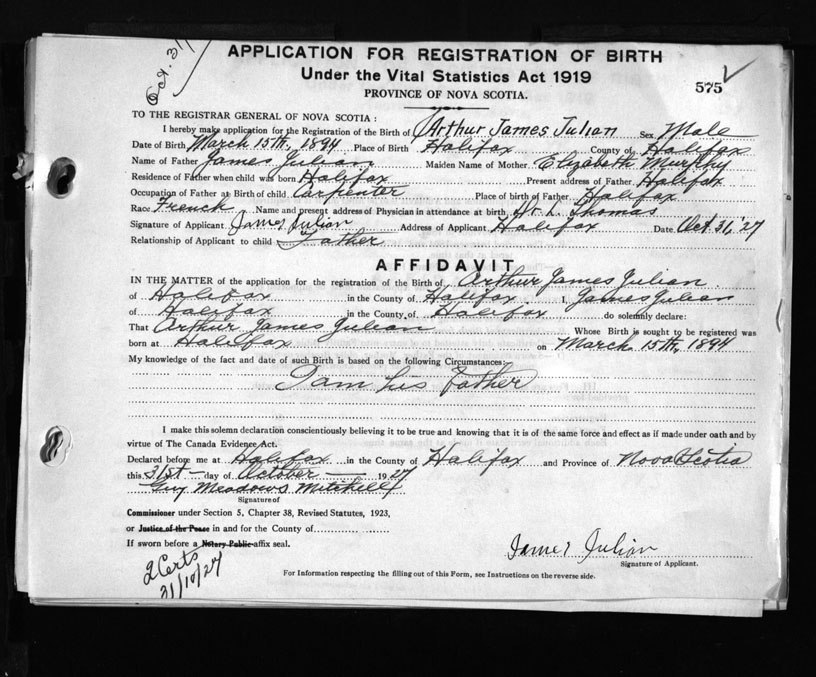 Oct. 31/
APPLICATION FOR REGISTRATION OF BIRTH
Under the Vital Statistics Act 1919
575 ✓
PROVINCE OF NOVA SCOTIA.
TO THE REGISTRAR GENERAL OF NOVA SCOTIA :
I hereby make application for the Registration of the Birth of Arthur James Julian Sex Male
Date of Birth March 15th, 1894 Place of Birth Halifax County of Halifax
Name of Father James Julian Maiden Name of Mother Elizabeth Murphy
Residence of Father when child was born Halifax Present address of Father Halifax
Occupation of Father at Birth of child Carpenter Place of birth of Father Halifax
Race French Name and present address of Physician in attendance at birth Dr. Thomas
Signature of Applicant James Julian Address of Applicant Halifax Date Oct 31, '27
Relationship of Applicant to child Father
AFFIDAVIT
IN THE MATTER of the application for the registration of the Birth of Arthur James Julian
of Halifax in the County of Halifax I, James Julian
of Halifax in the County of Halifax do solemnly declare:
That Arthur James Julian Whose Birth is sought to be registered was
born at Halifax on March 15th, 1894
My knowledge of the fact and date of such Birth is based on the following Circumstances:-
I am his Father
I make this solemn declaration conscientiously believing it to be true and knowing that it is of the same force and effect as if made under oath and by
virtue of The Canada Evidence Act.
Declared before me at Halifax in the County of Halifax and Province of Nova Scotia
this 31st day of October 1927
Guy Meadows Mitchell
Signature of
Commissioner under Section 5, Chapter 38, Revised Statutes, 1923,
or Justice of the Peace in and for the County of
If sworn before a Notary Public affix seal.
James Julian
Signature of Applicant.
2 Certs
31/10/27
For Information respecting the filling out of this Form, see Instructions on the reverse side.